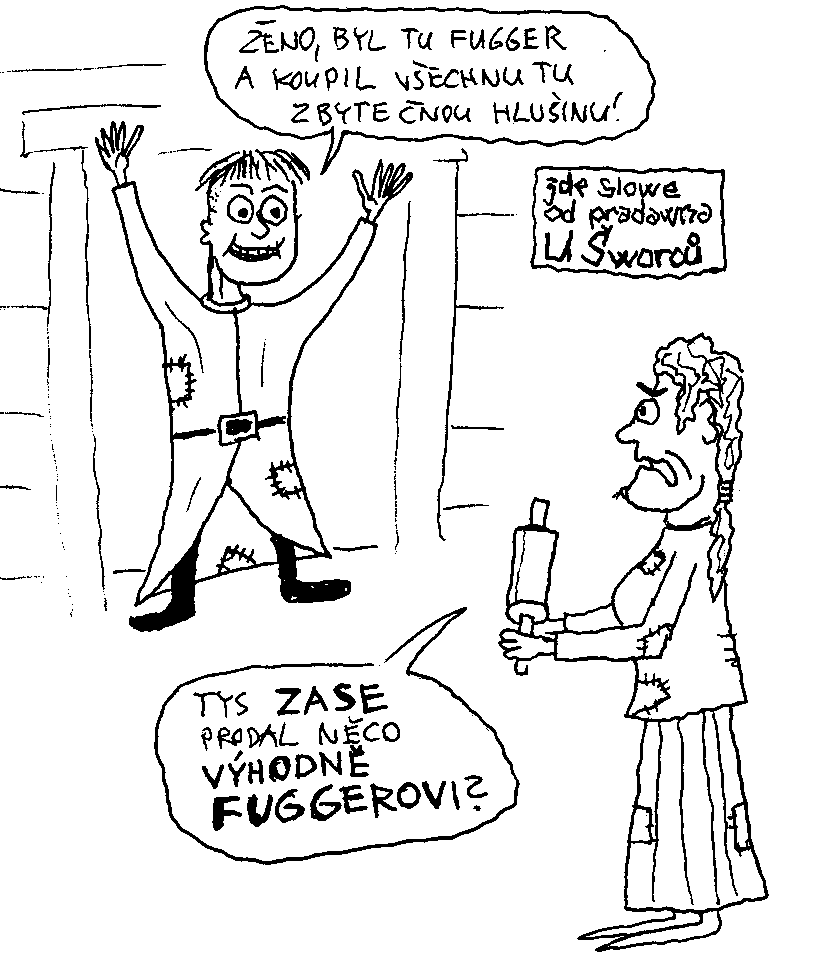 ŽĚNO, BYL TU FUGGER
A KOUPIL VŠECHNU TU
ZBYTEČNOU HLUŠINU!
zde slowe
od pradawna
U Šworců
TYS ZASE
PRODAL NĚCO
VÝHODNĚ
FUGGEROVI?